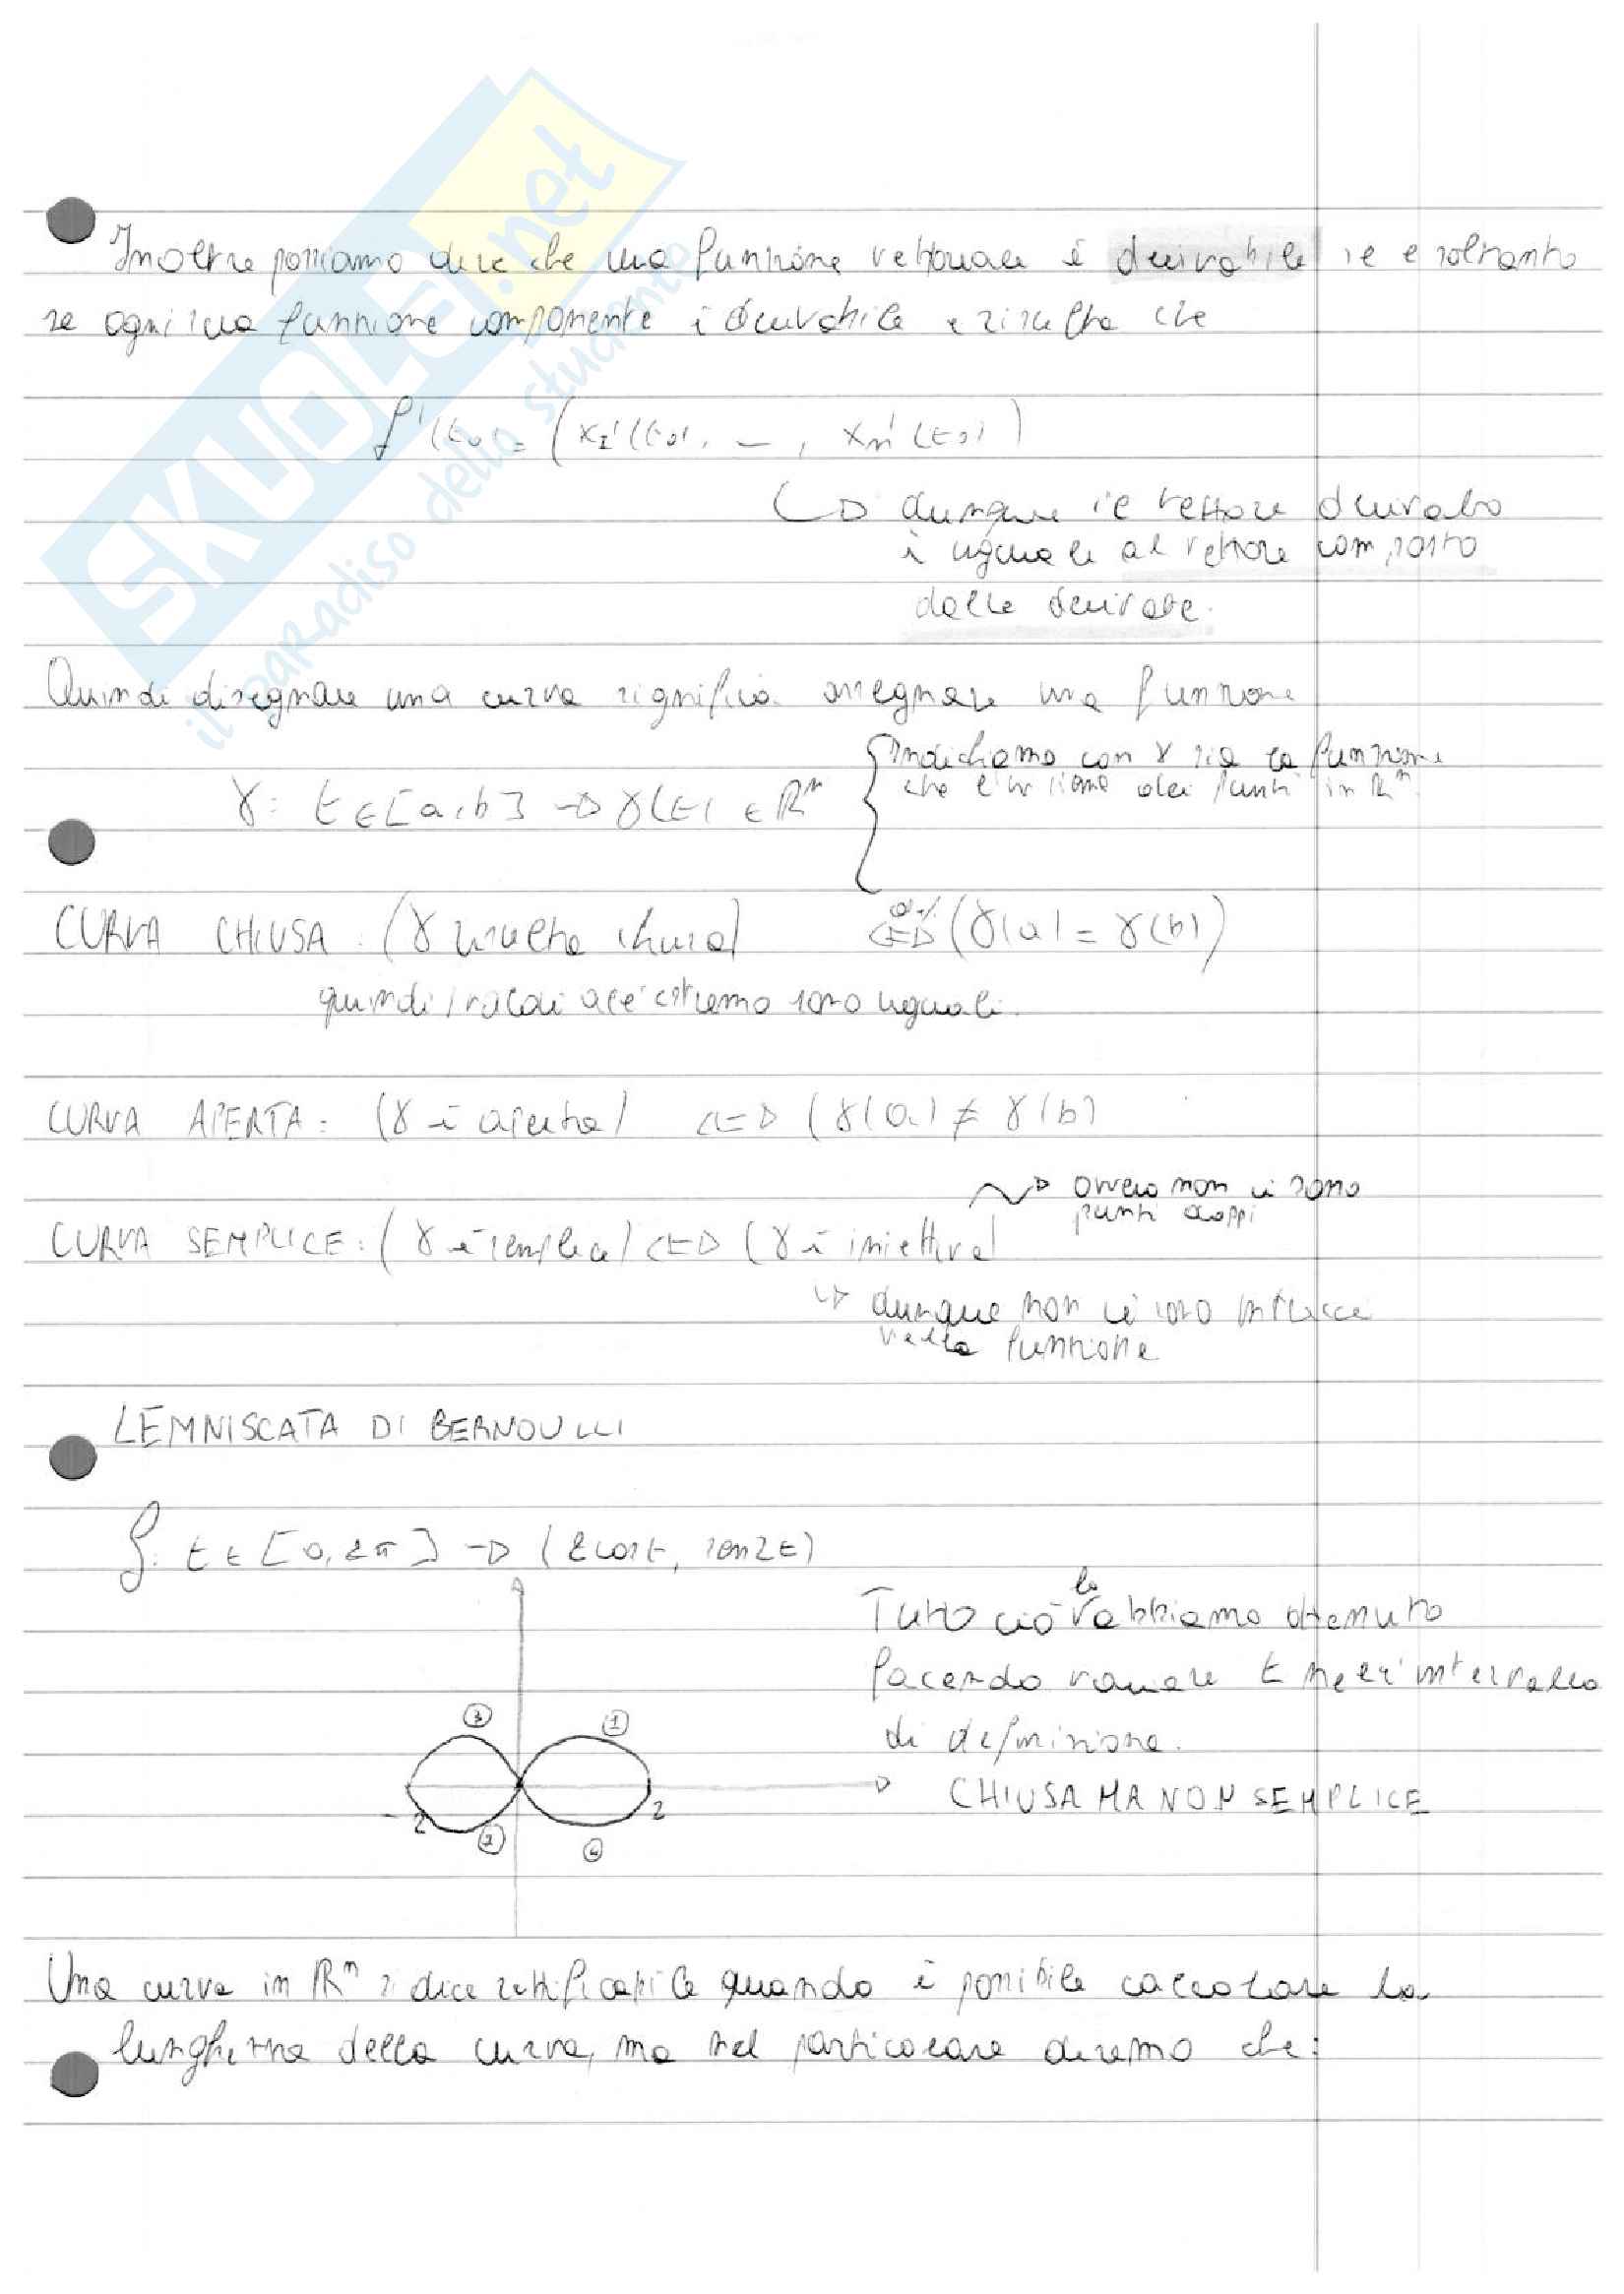 SKUOLA.net
il paradiso dello studente
Inoltre possiamo dire che una funzione vettoriale è derivabile se e soltanto
se ogni sua funzione componente è derivabile e risulta che
f'(t₀) = (x₁'(t₀), _ , xₙ'(t₀))
dunque il vettore derivato
è uguale al vettore composto
dalle derivate.
Quindi disegnare una curva significa assegnare una funzione
γ: t ∈ [a,b] → γ(t) ∈ ℝⁿ
{ Indichiamo con γ sia la funzione
che l'insieme dei punti in ℝⁿ.
CURVA CHIUSA: (γ risulta chiusa) ⇔ (γ(a) = γ(b))
quindi i valori all'estremo sono uguali.
CURVA APERTA: (γ è aperta) ⇔ (γ(a) ≠ γ(b)
ovvero non ci sono
punti doppi
CURVA SEMPLICE: (γ è semplice) ⇔ (γ è iniettiva)
dunque non ci sono intrecci
nella funzione
LEMNISCATA DI BERNOULLI
f: t ∈ [0, 2π] → (2cost, sen2t)
Tutto ciò lo abbiamo ottenuto
facendo variare t nell'intervallo
di definizione.
③ ①
CHIUSA MA NON SEMPLICE
-2 2
② ④
Una curva in ℝⁿ si dice rettificabile quando è possibile calcolare la
lunghezza della curva, ma nel particolare diremo che: